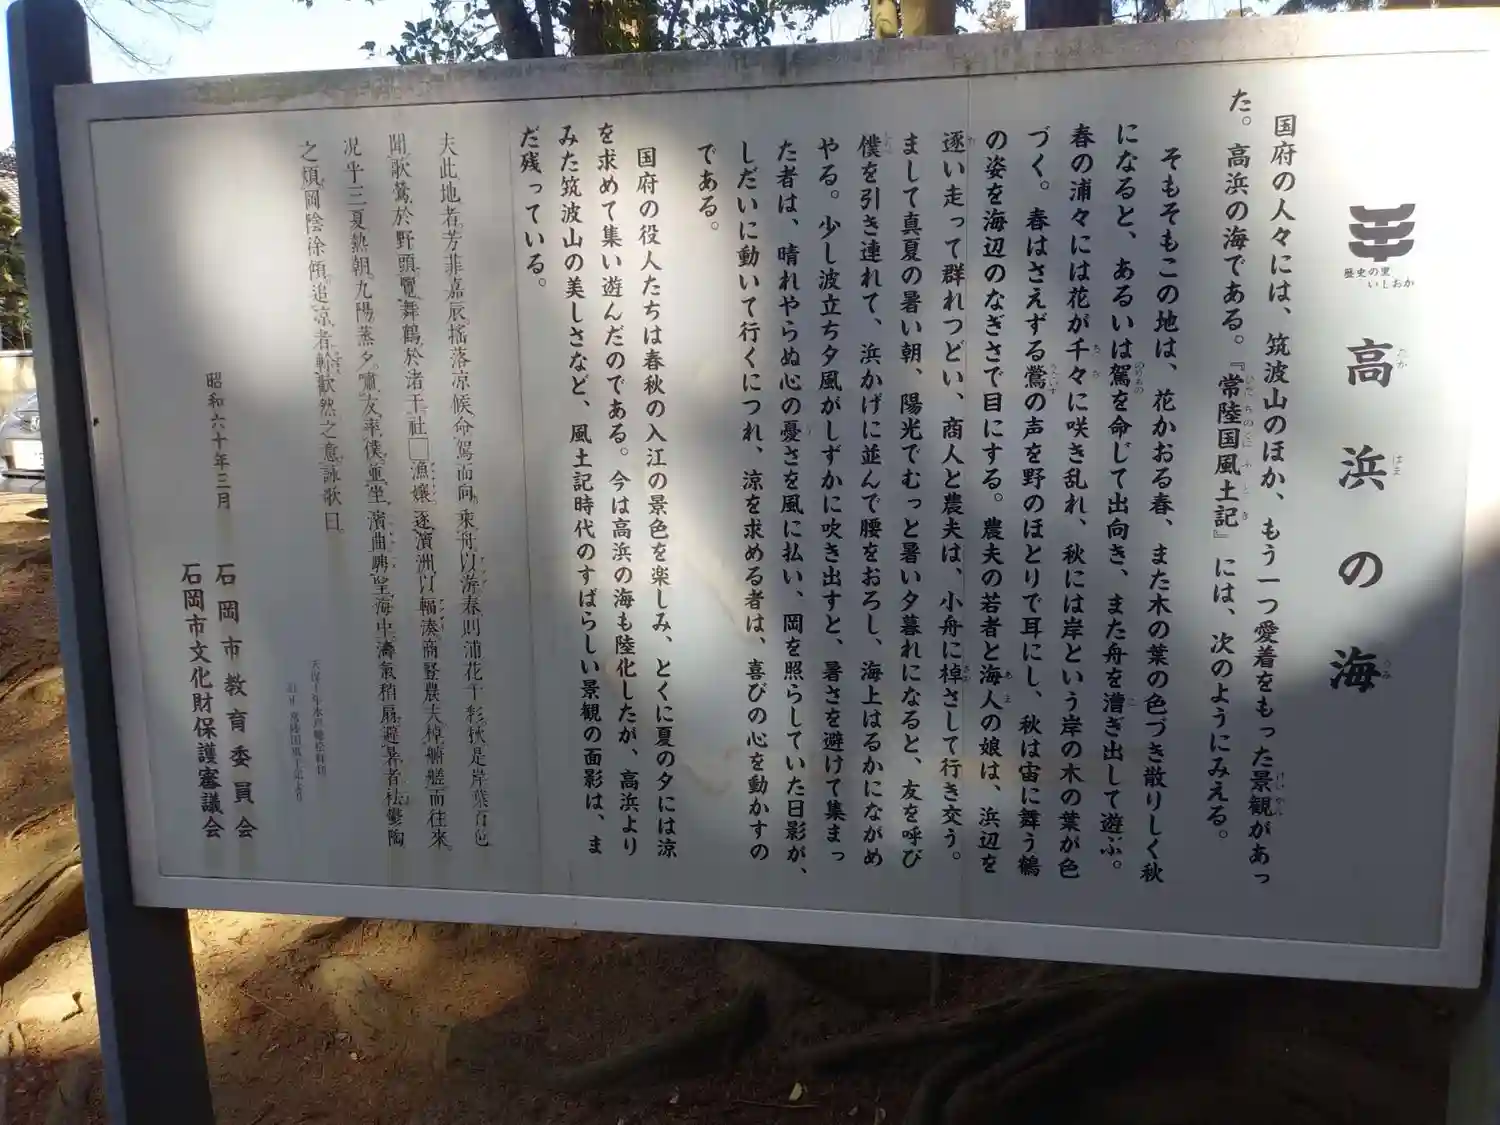 歴史の里
いしおか
高浜の海
たか はま うみ
国府の人々には、筑波山のほか、もう一つ愛着をもった景観があっ
た。高浜の海である。『常陸国風土記』には、次のようにみえる。
そもそもこの地は、花かおる春、また木の葉の色づき散りしく秋
になると、あるいは駕を命じて出向き、また舟を漕ぎ出して遊ぶ。
春の浦々には花が千々に咲き乱れ、秋には岸という岸の木の葉が色
づく。春はさえずる鶯の声を野のほとりで耳にし、秋は宙に舞う鶴
の姿を海辺のなぎさで目にする。農夫の若者と海人の娘は、浜辺を
逐い走って群れつどい、商人と農夫は、小舟に棹さして行き交う。
まして真夏の暑い朝、陽光でむっと暑い夕暮れになると、友を呼び
僕を引き連れて、浜かげに並んで腰をおろし、海上はるかにながめ
やる。少し波立ち夕風がしずかに吹き出すと、暑さを避けて集まっ
た者は、晴れやらぬ心の憂さを風に払い、岡を照らしていた日影が、
しだいに動いて行くにつれ、涼を求める者は、喜びの心を動かすの
である。
国府の役人たちは春秋の入江の景色を楽しみ、とくに夏の夕には涼
を求めて集い遊んだのである。今は高浜の海も陸化したが、高浜より
みた筑波山の美しさなど、風土記時代のすばらしい景観の面影は、ま
だ残っている。
夫此地者芳菲嘉辰揺落凉候命駕而向乗舟以游春則浦花千彩秋是岸葉百色
聞歌鶯於野頭覽舞鶴於渚干社□漁嬢逐濱洲以輻湊商竪農夫棹艖而往來
况乎三夏熱朝九陽蒸夕嘯友率僕並坐濱曲騁望海中濤氣稍扇避暑者袪鬱陶
之煩岡陰徐傾追凉者軫歡然之意詠歌曰
昭和六十年三月
石岡市教育委員会
石岡市文化財保護審議会